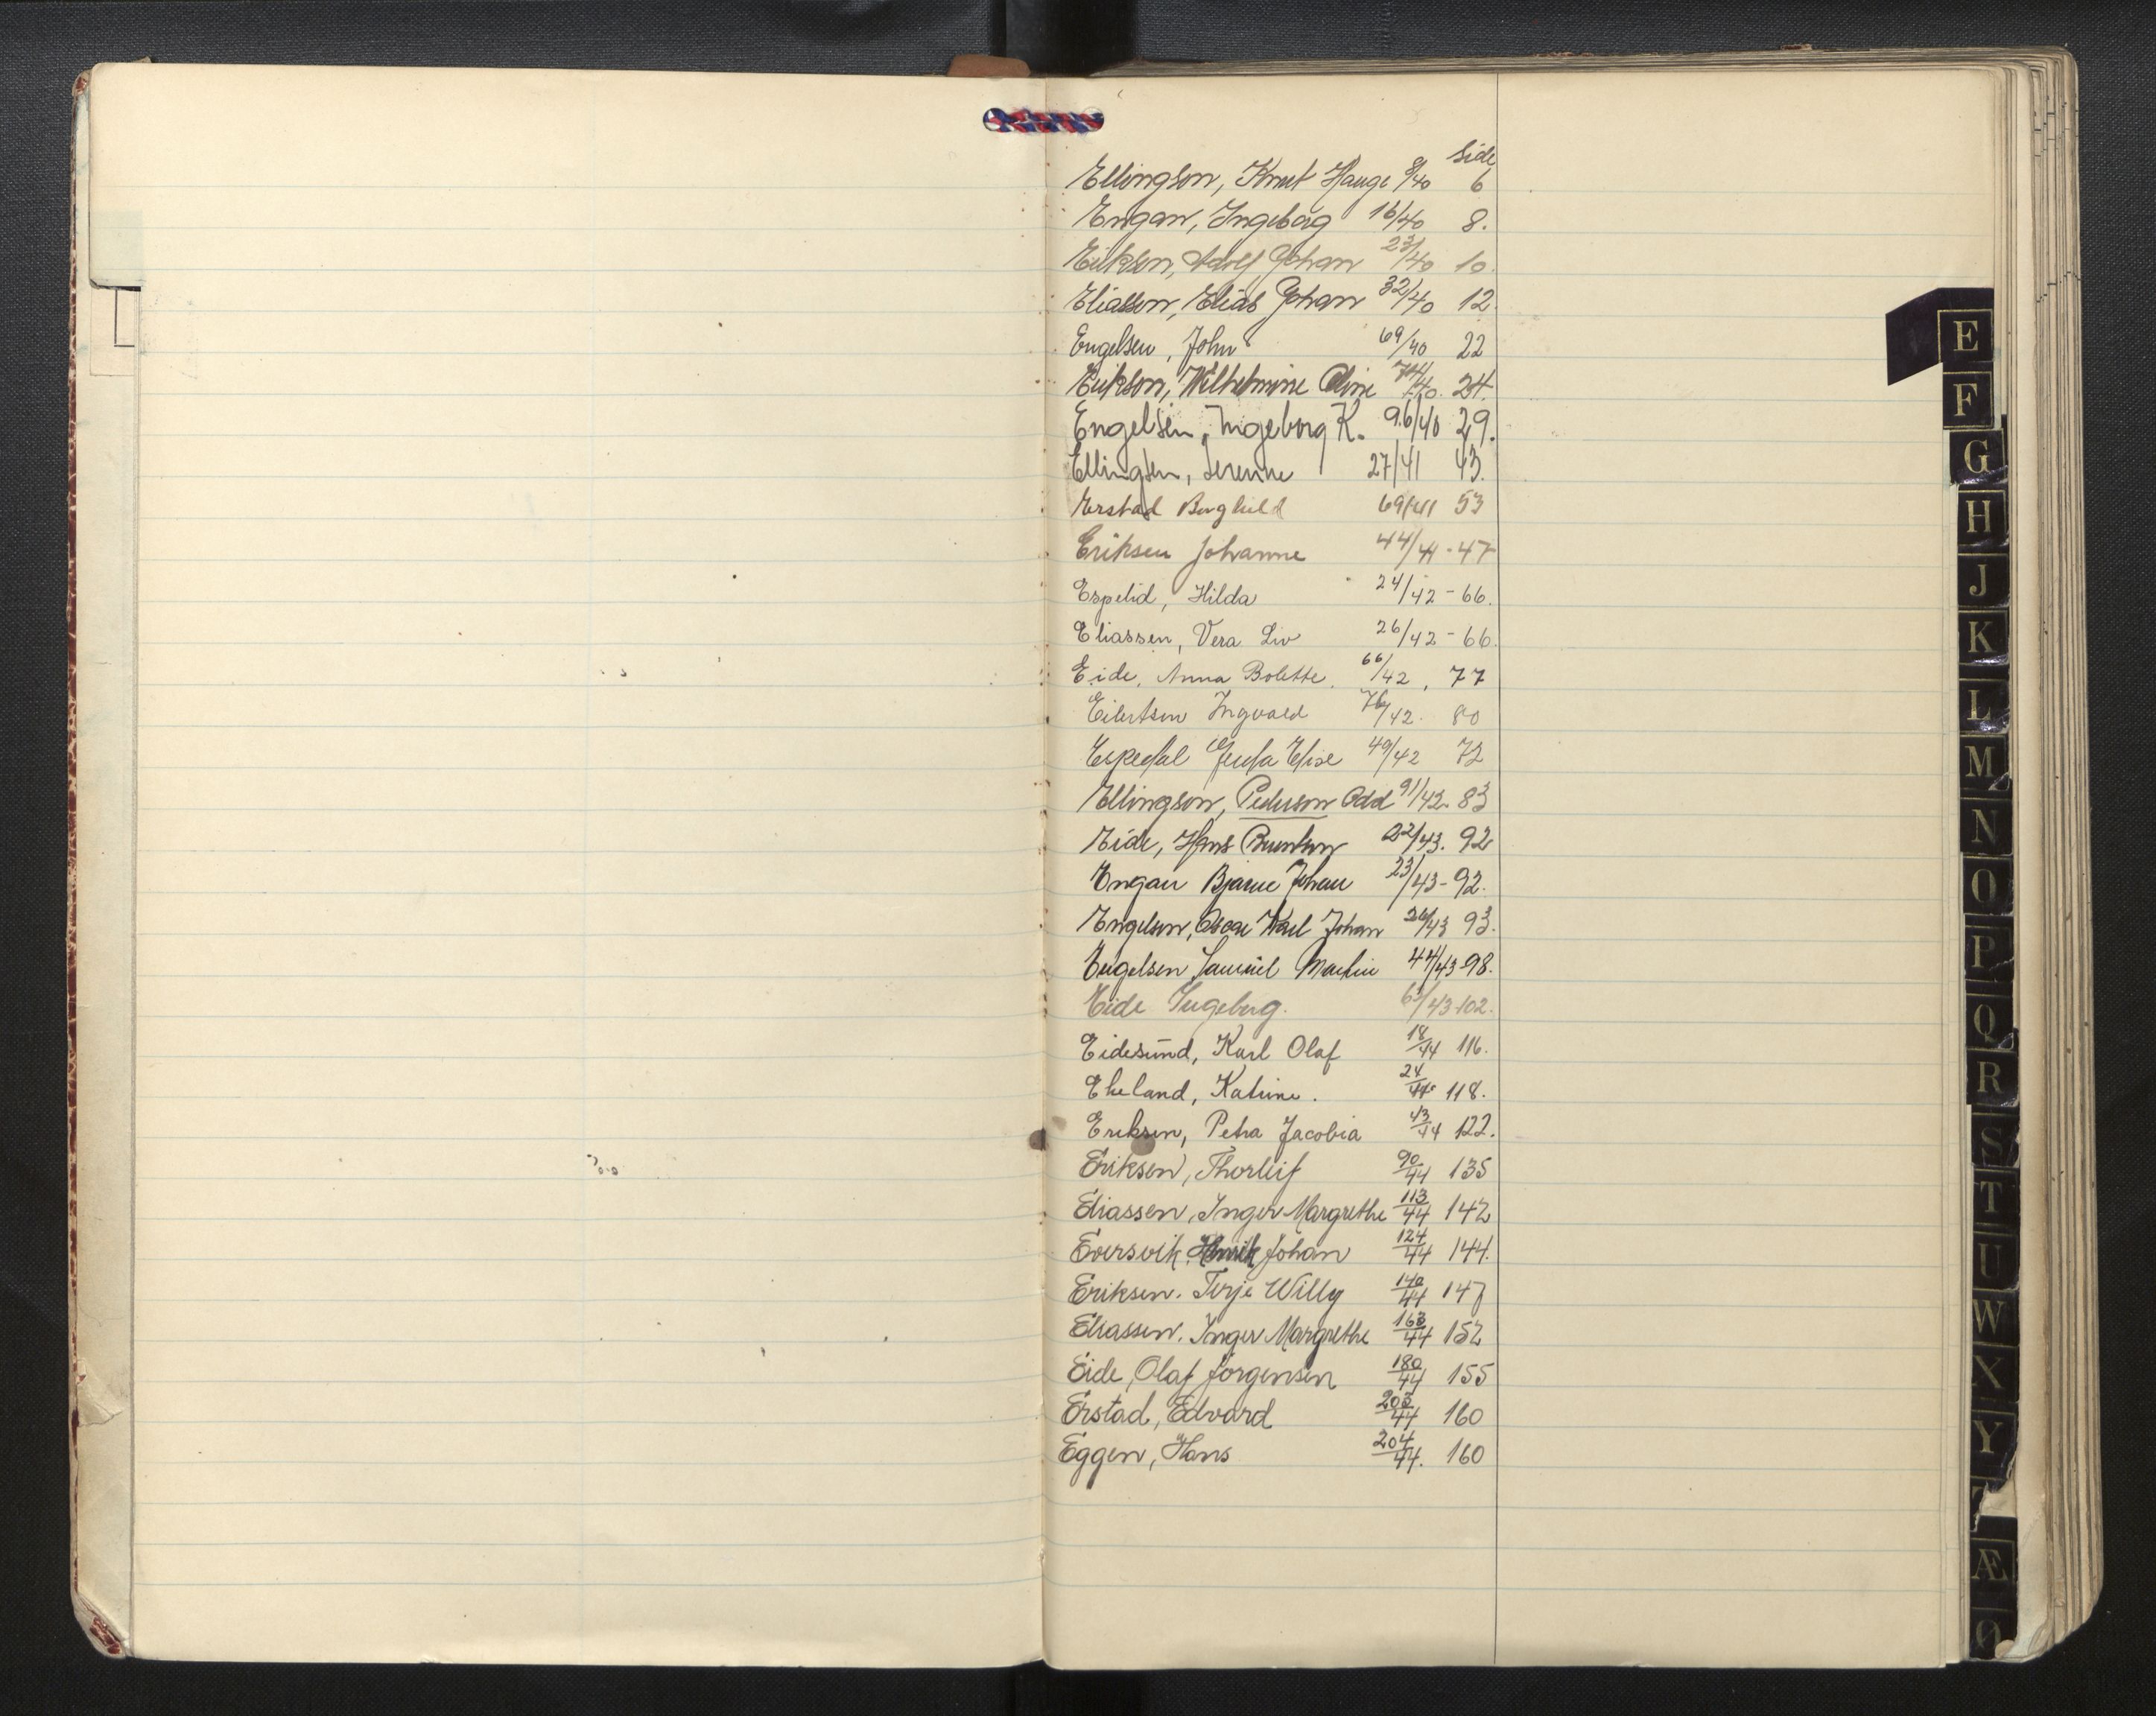 Side
Ellingsen, Knut Hauge 8/40 6
Engan, Ingeborg 16/40 8.
Eriksen, Adolf Johan 23/40 10.
Eliassen, Elias Johan 32/40 12
Engelsen, John 69/40 22
Eriksen, Wilhelmine Oline 74/40. 24.
Engelsen, Ingeborg K. 96/40 29.
Ellingsen, Serenne 27/41 43.
Erstad Borghild 69/41 53
Eriksen Johanne 44/41 - 47
Espelid, Hilda 24/42 - 66.
Eliassen, Vera Liv 26/42 - 66.
Eide, Anna Bolette. 66/42, 77
Eilertsen Ingvald 76/42. 80
Espedal Elise 49/42 72
Ellingsen, Pedersen Odd 91/42. 83
Eide, Hans 22/43. 92
Engan Bjarne Johan 23/43 - 92.
Engelsen, Oscar Karl Johan 26/43 93.
Engelsen Samuel Martin 44/43-98.
Eide Ingeborg. 63/43-102.
Eidesund, Karl Olaf 18/44 116.
Ekeland, Katrine. 24/44 118.
Eriksen, Petra Jacobia 43/44 122.
Eriksen, Thorleif 90/44 135
Eliassen, Inger Margrethe 113/44 142
Eversvik, Henrik Johan 124/44 144.
Eriksen. Terje Willy 140/44 147
Eliassen. Inger Margrethe 163/44 152
Eide, Olaf Jørgensen 180/44 155
Erstad, Edvard 203/44 160
Eggen, Hans 204/44. 160
E
F
G
H
J
K
L
M
N
O
P
Q
R
S
T
U
W
X
Y
Z
Æ
Ø